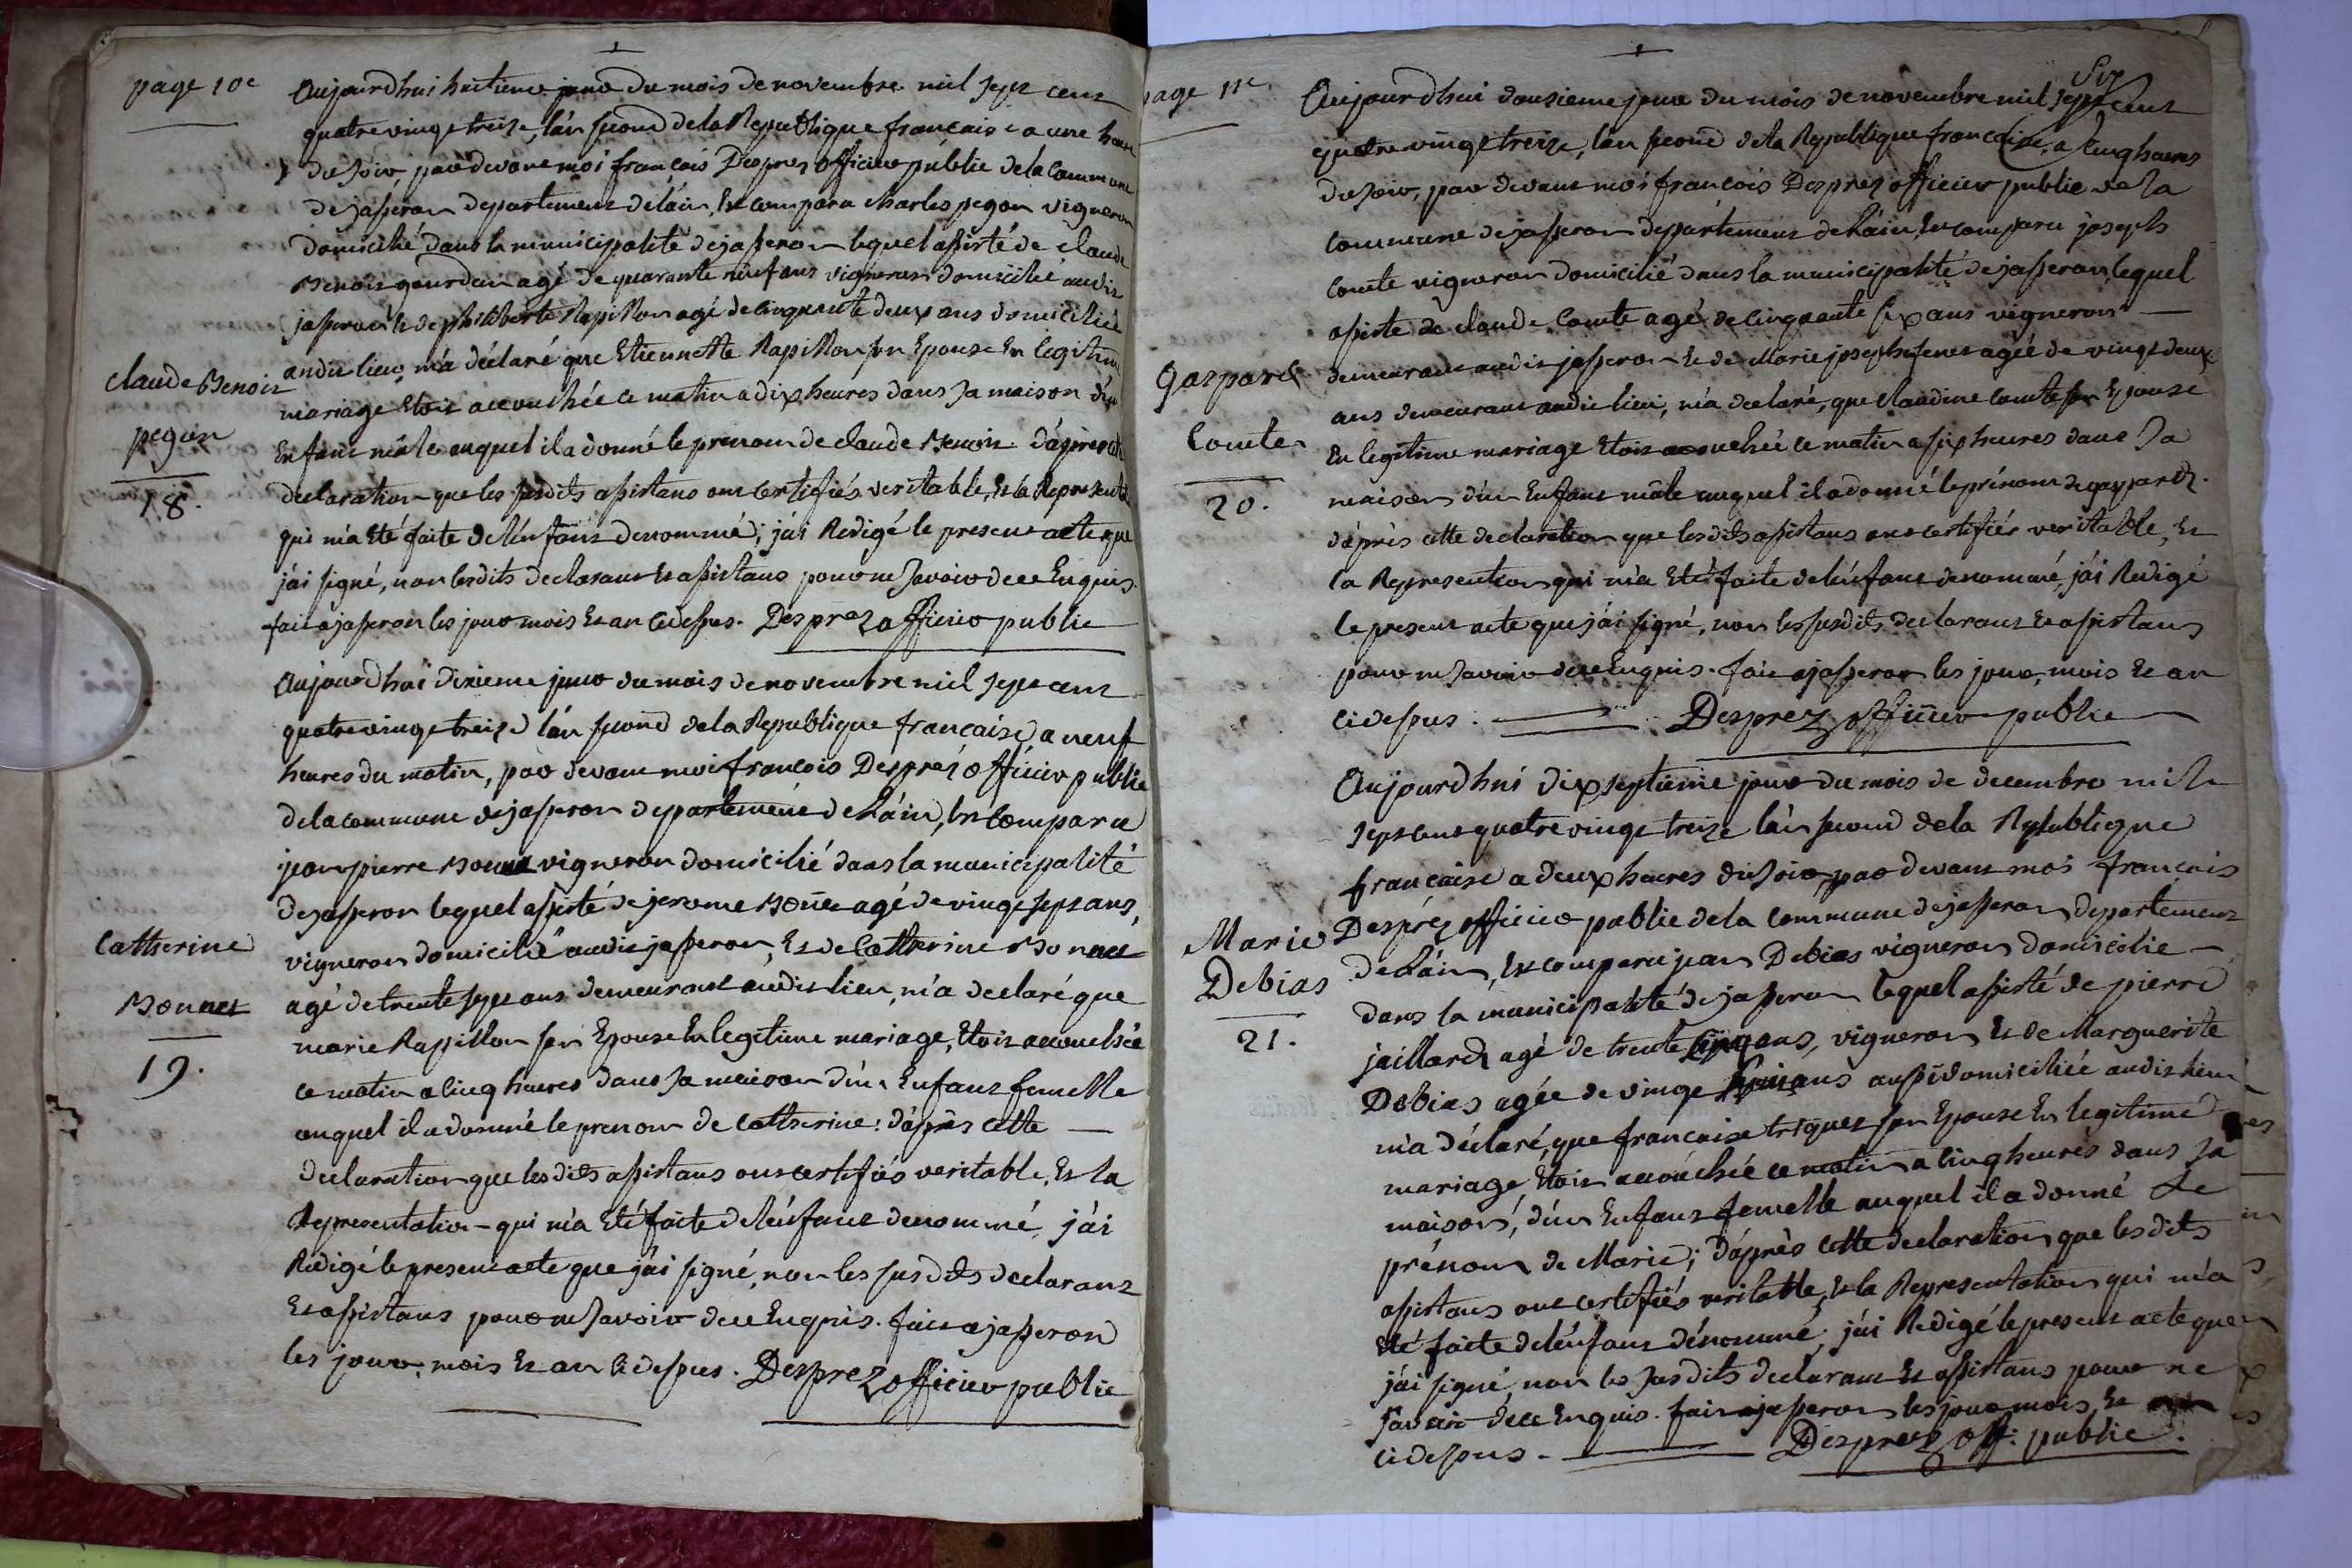 page 10e
Aujourdhui huitieme jour du mois de novembre mil sept cent
quatre vingt treize, l'an second de la Republique francaise a une heure
du soir, par devant moi francois Desprez officier public de la commune
de jasseron departement de l'ain, Est comparu charles pegon vigneron
domicilié dans la municipalité de jasseron lequel assisté de claude
Benoit gourdan agé de quarante neuf ans vigneron domicilié audit
jasseron Et de philiberte Rapillon agé de cinquante deux ans domiciliée
audit lieu, m'a déclaré que Etiennette Rapillon son Epouse En legitime
mariage Etoit accouchée ce matin a dix heures dans sa maison d'un
Enfant mâle auquel il a donné le prenom de claude Benoit. d'après cette
declaration que les susdits assistans ont certifiés veritable, Et la Represent
qui m'a Eté faite de l'enfant denommé; j'ai Redigé le present acte que
j'ai signé, non lesdits declarant Et assistans pour ne savoir de ce Enquis.
fait a jasseron les jour mois Et an cidessus. Desprez officier public
claude Benoit
pegon
18.
Aujourdhui dixieme jour du mois de novembre mil sept cent
quatre vingt treize l'an second de la Republique francaise a neuf
heures du matin, par devant moi francois Desprez officier public
de la commune de jasseron departement de L'ain, Est Comparu
jean pierre Bonnet vigneron domicilié dans la municipalité
de jasseron lequel assisté de jerome Bonnet agé de vingt sept ans,
vigneron domicilié audit jasseron, Et de Catherine Bonnet
agé de trente sept ans demeurant audit lieu, m'a declaré que
marie Rapillon son Epouse En legitime mariage, Etoit accouchée
ce matin a cinq heures dans sa maison d'un Enfant femelle
auquel il a donné le prenom de Catherine: d'après cette
declaration que lesdits assistans ont certifiés veritable, Et la
Representation qui m'a Eté faite de l'enfant denommé, j'ai
Redigé le present acte que j'ai signé, non les susdits declarant
Et assistans pour ne savoir de ce Enquis. fait a jasseron
les jour, mois Et an cidessus. Desprez officier public
Catherine
Bonnet
19.
page 11e
Six
Aujourdhui dousieme jour du mois de novembre mil sept cent
quatre vingt treize, l'an second de la Republique francaise, a cinq heures
du soir, par devant moi francois Desprez officier public de la
commune de jasseron departement de L'ain, Est comparu joseph
Comte vigneron domicilié dans la municipalité de jasseron, lequel
assisté de claude Comte agé de cinquante six ans vigneron
demeurant audit jasseron Et de Marie joseph agée de vingt deux
ans demeurant audit lieu, m'a declaré, que claudine Comte son Epouse
En legitime mariage Etoit accouchée ce matin a six heures dans sa
maison d'un Enfant mâle auquel il a donné le prénom de gaspard.
d'après cette declaration que lesdits assistans ont certifiés veritable, Et
la Representation qui m'a Eté faite de l'enfant denommé, j'ai Redigé
le present acte que j'ai signé, non les susdits declarant Et assistans
pour ne savoir de ce Enquis. fait a jasseron les jour, mois Et an
cidessus. Desprez officier public
Gaspard
Comte
20.
Aujourdhui dix septieme jour du mois de decembre mille
sept cent quatre vingt treize l'an second de la Republique
francaise a deux heures du soir, par devant moi francois
Desprez officier public de la commune de jasseron departement
de L'ain, Est comparu jean Debias vigneron domicilié
dans la municipalité de jasseron lequel assisté de pierre
jaillard agé de trente cinq ans, vigneron Et de Marguerite
Debias agée de vingt ans aussi domiciliée audit lieu
m'a déclaré, que francaise triquet son Epouse En legitime
mariage Etoit accouchée ce matin a cinq heures dans sa
maison, d'un Enfant femelle auquel il a donné Le
prénom de Marie; d'après cette declaration que lesdits
assistans ont certifiés veritable, Et la Representation qui m'a
Eté faite de l'enfant dénommé, j'ai Redigé le present acte que
j'ai signé, non les susdits declarant Et assistans pour ne
savoir de ce Enquis. fait a jasseron les jour mois, Et an
cidessus. Desprez off. public.
Marie
Debias
21.